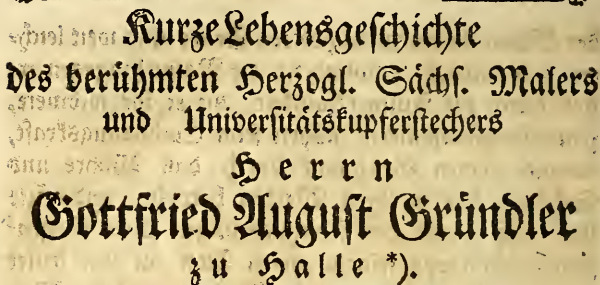 Kurze Lebensgeſchichte
des berühmten Herzogl. Sächſ. Malers
und Univerſitätskupferſtechers
Herrn
Gottfried Auguſt Gründler
zu Halle *).